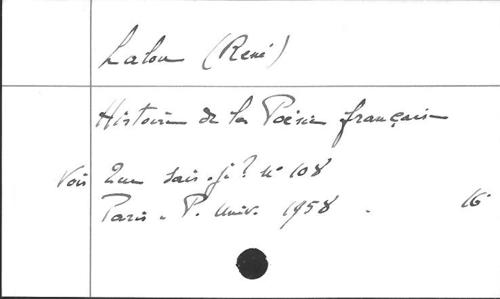 Lalou (René)
Histoire de la Poésie française
Voir Que sais-je? n° 108
Paris. P. Univ. 1958. 16°